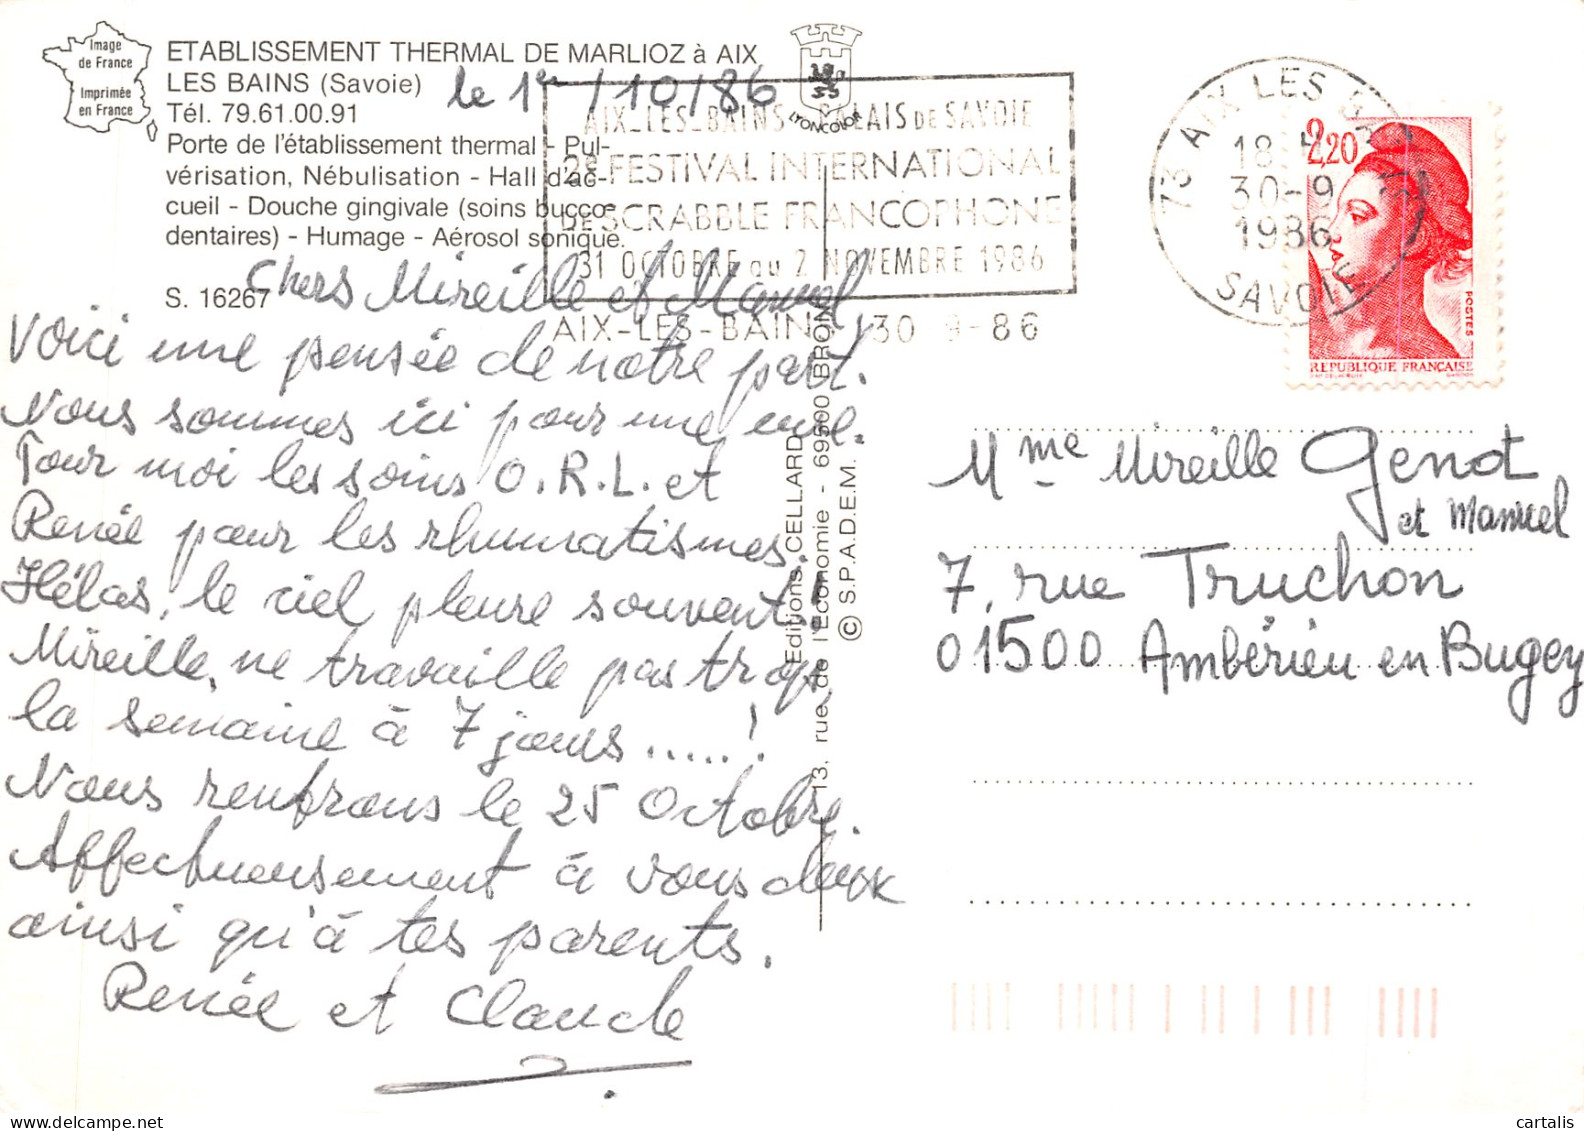 Image
de France
Imprimée
en France
ETABLISSEMENT THERMAL DE MARLIOZ à AIX
LES BAINS (Savoie)
Tél. 79.61.00.91
Porte de l'établissement thermal - Pul-
vérisation, Nébulisation - Hall d'ac-
cueil - Douche gingivale (soins bucco-
dentaires) - Humage - Aérosol sonique.
S. 16267
LYONCOLOR
le 1er/10/86
AIX-LES-BAINS - PALAIS DE SAVOIE
2e FESTIVAL INTERNATIONAL
DE SCRABBLE FRANCOPHONE
31 OCTOBRE au 2 NOVEMBRE 1986
AIX-LES-BAINS 30 9-86
73 AIX LES BAINS
18 H
30-9
1986
SAVOIE
2,20
POSTES
REPUBLIQUE FRANÇAISE
Chers Mireille et Manuel,
Voici une pensée de notre part.
Nous sommes ici pour une cure.
Pour moi les soins O.R.L. et
Renée pour les rhumatismes.
Hélas, le ciel pleure souvent !
Mireille, ne travaille pas trop,
la semaine à 7 jours.....!
Nous rentrons le 25 Octobre.
Affectueusement à vous deux
ainsi qu'à tes parents.
Renée et Claude
Editions CELLARD
13, rue de l'Economie - 69500 BRON
© S.P.A.D.E.M.
Mme Mireille Genot
et Manuel
7, rue Truchon
01500 Ambérieu en Bugey
cartalis